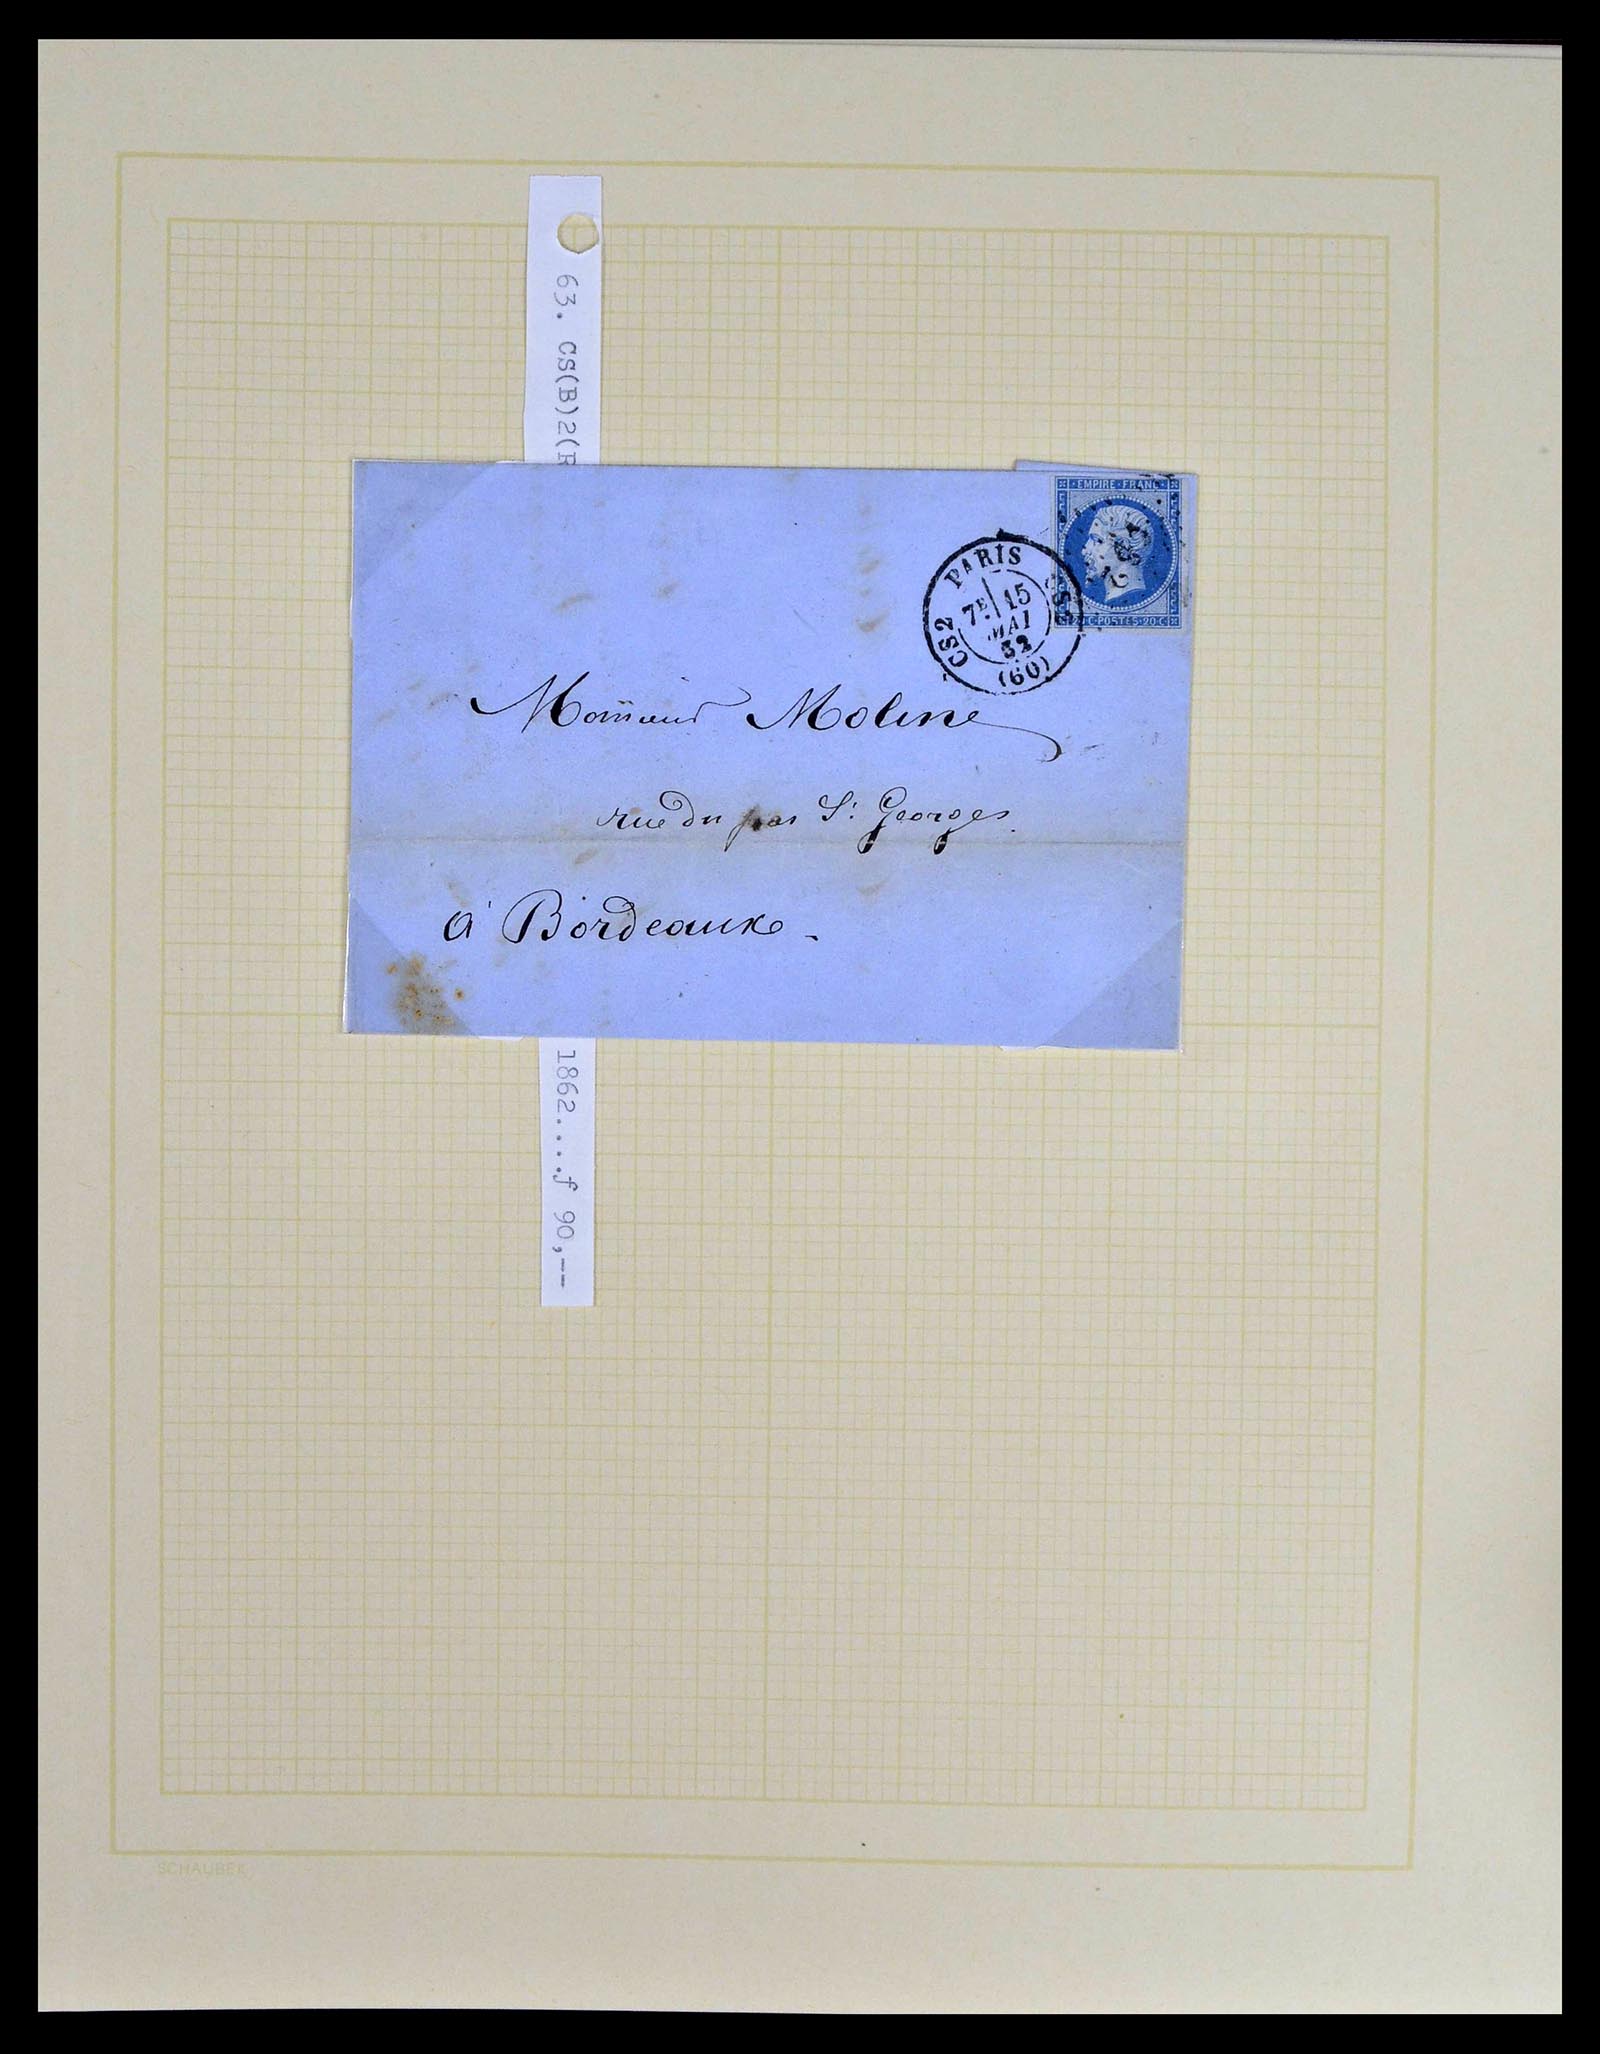 63. CS(B)2(
EMPIRE FRANC
20 C POSTES 20 C
PARIS
CS2
7E 15
MAI
(60)
Monsieur Moline
rue du pas St Georges
à Bordeaux
1862.....f 90,--
SCHAUBEK